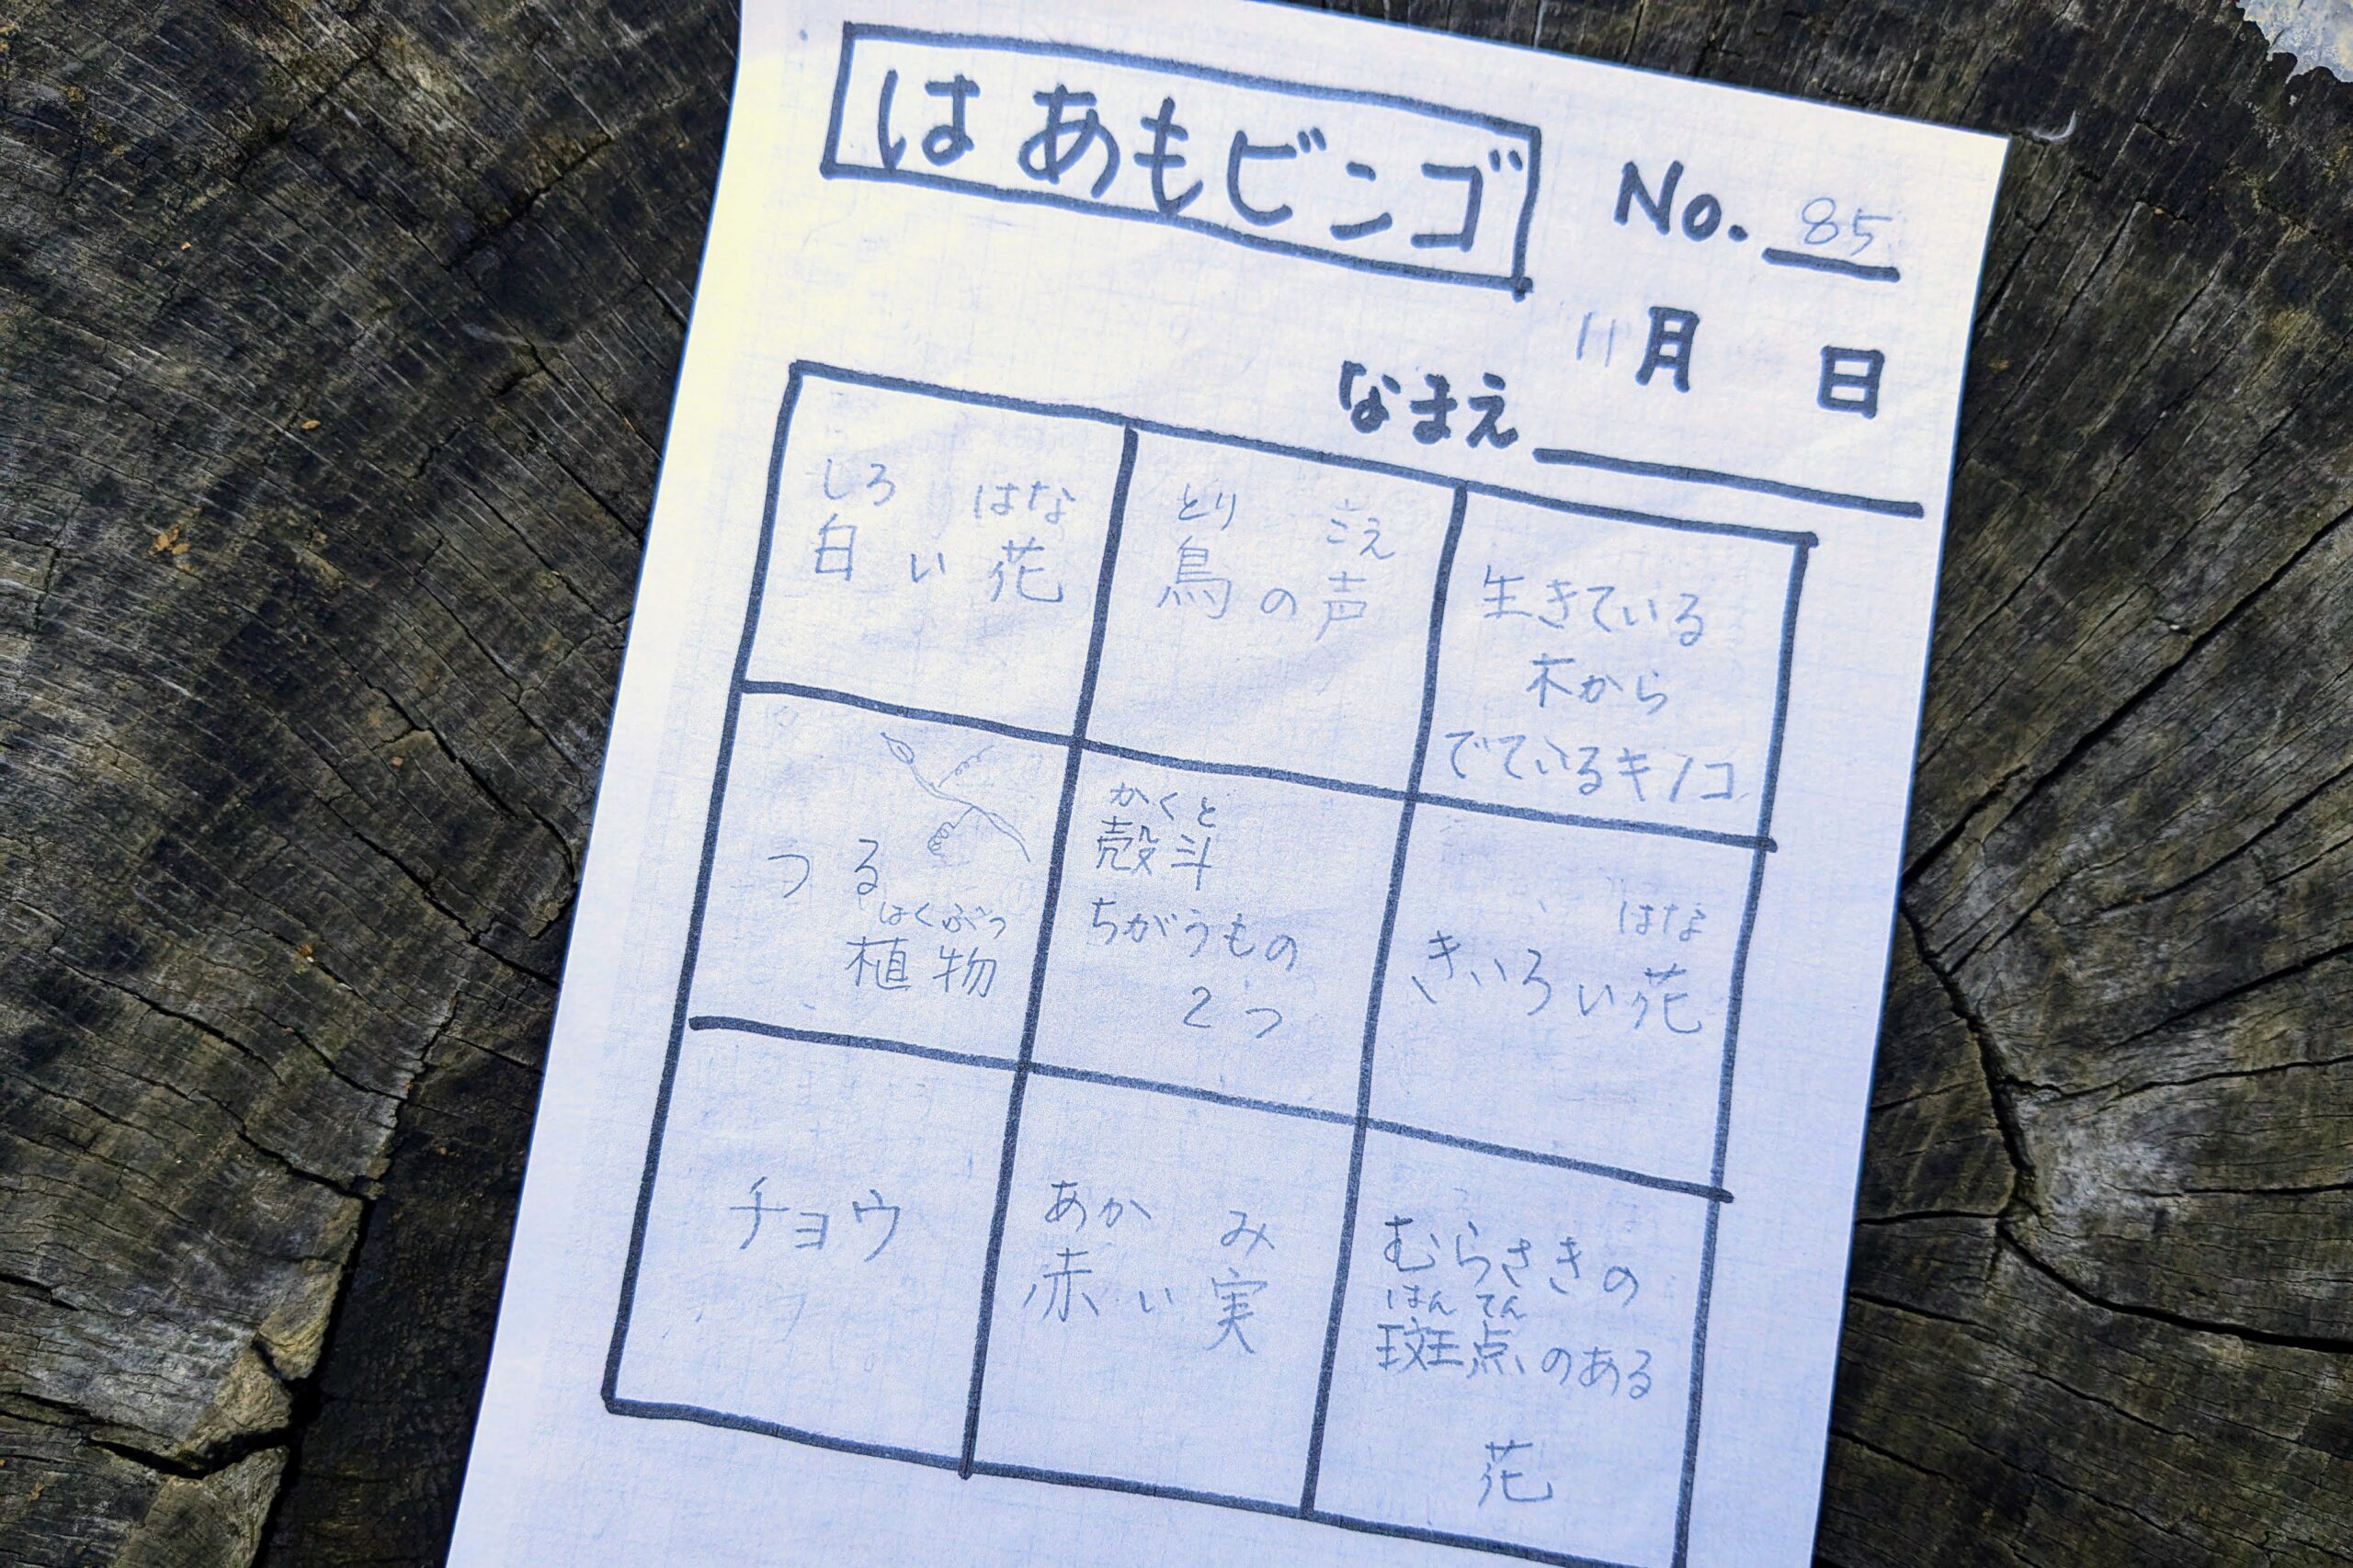 はあもビンゴ
No. 85
11月 日
なまえ
しろ はな
白い花
とり こえ
鳥の声
生きている
木から
でているキノコ
つる
はくぶつ
植物
かくと
殻斗
ちがうもの
2つ
はな
きいろい花
チョウ
あか み
赤い実
むらさきの
はんてん
斑点のある
花